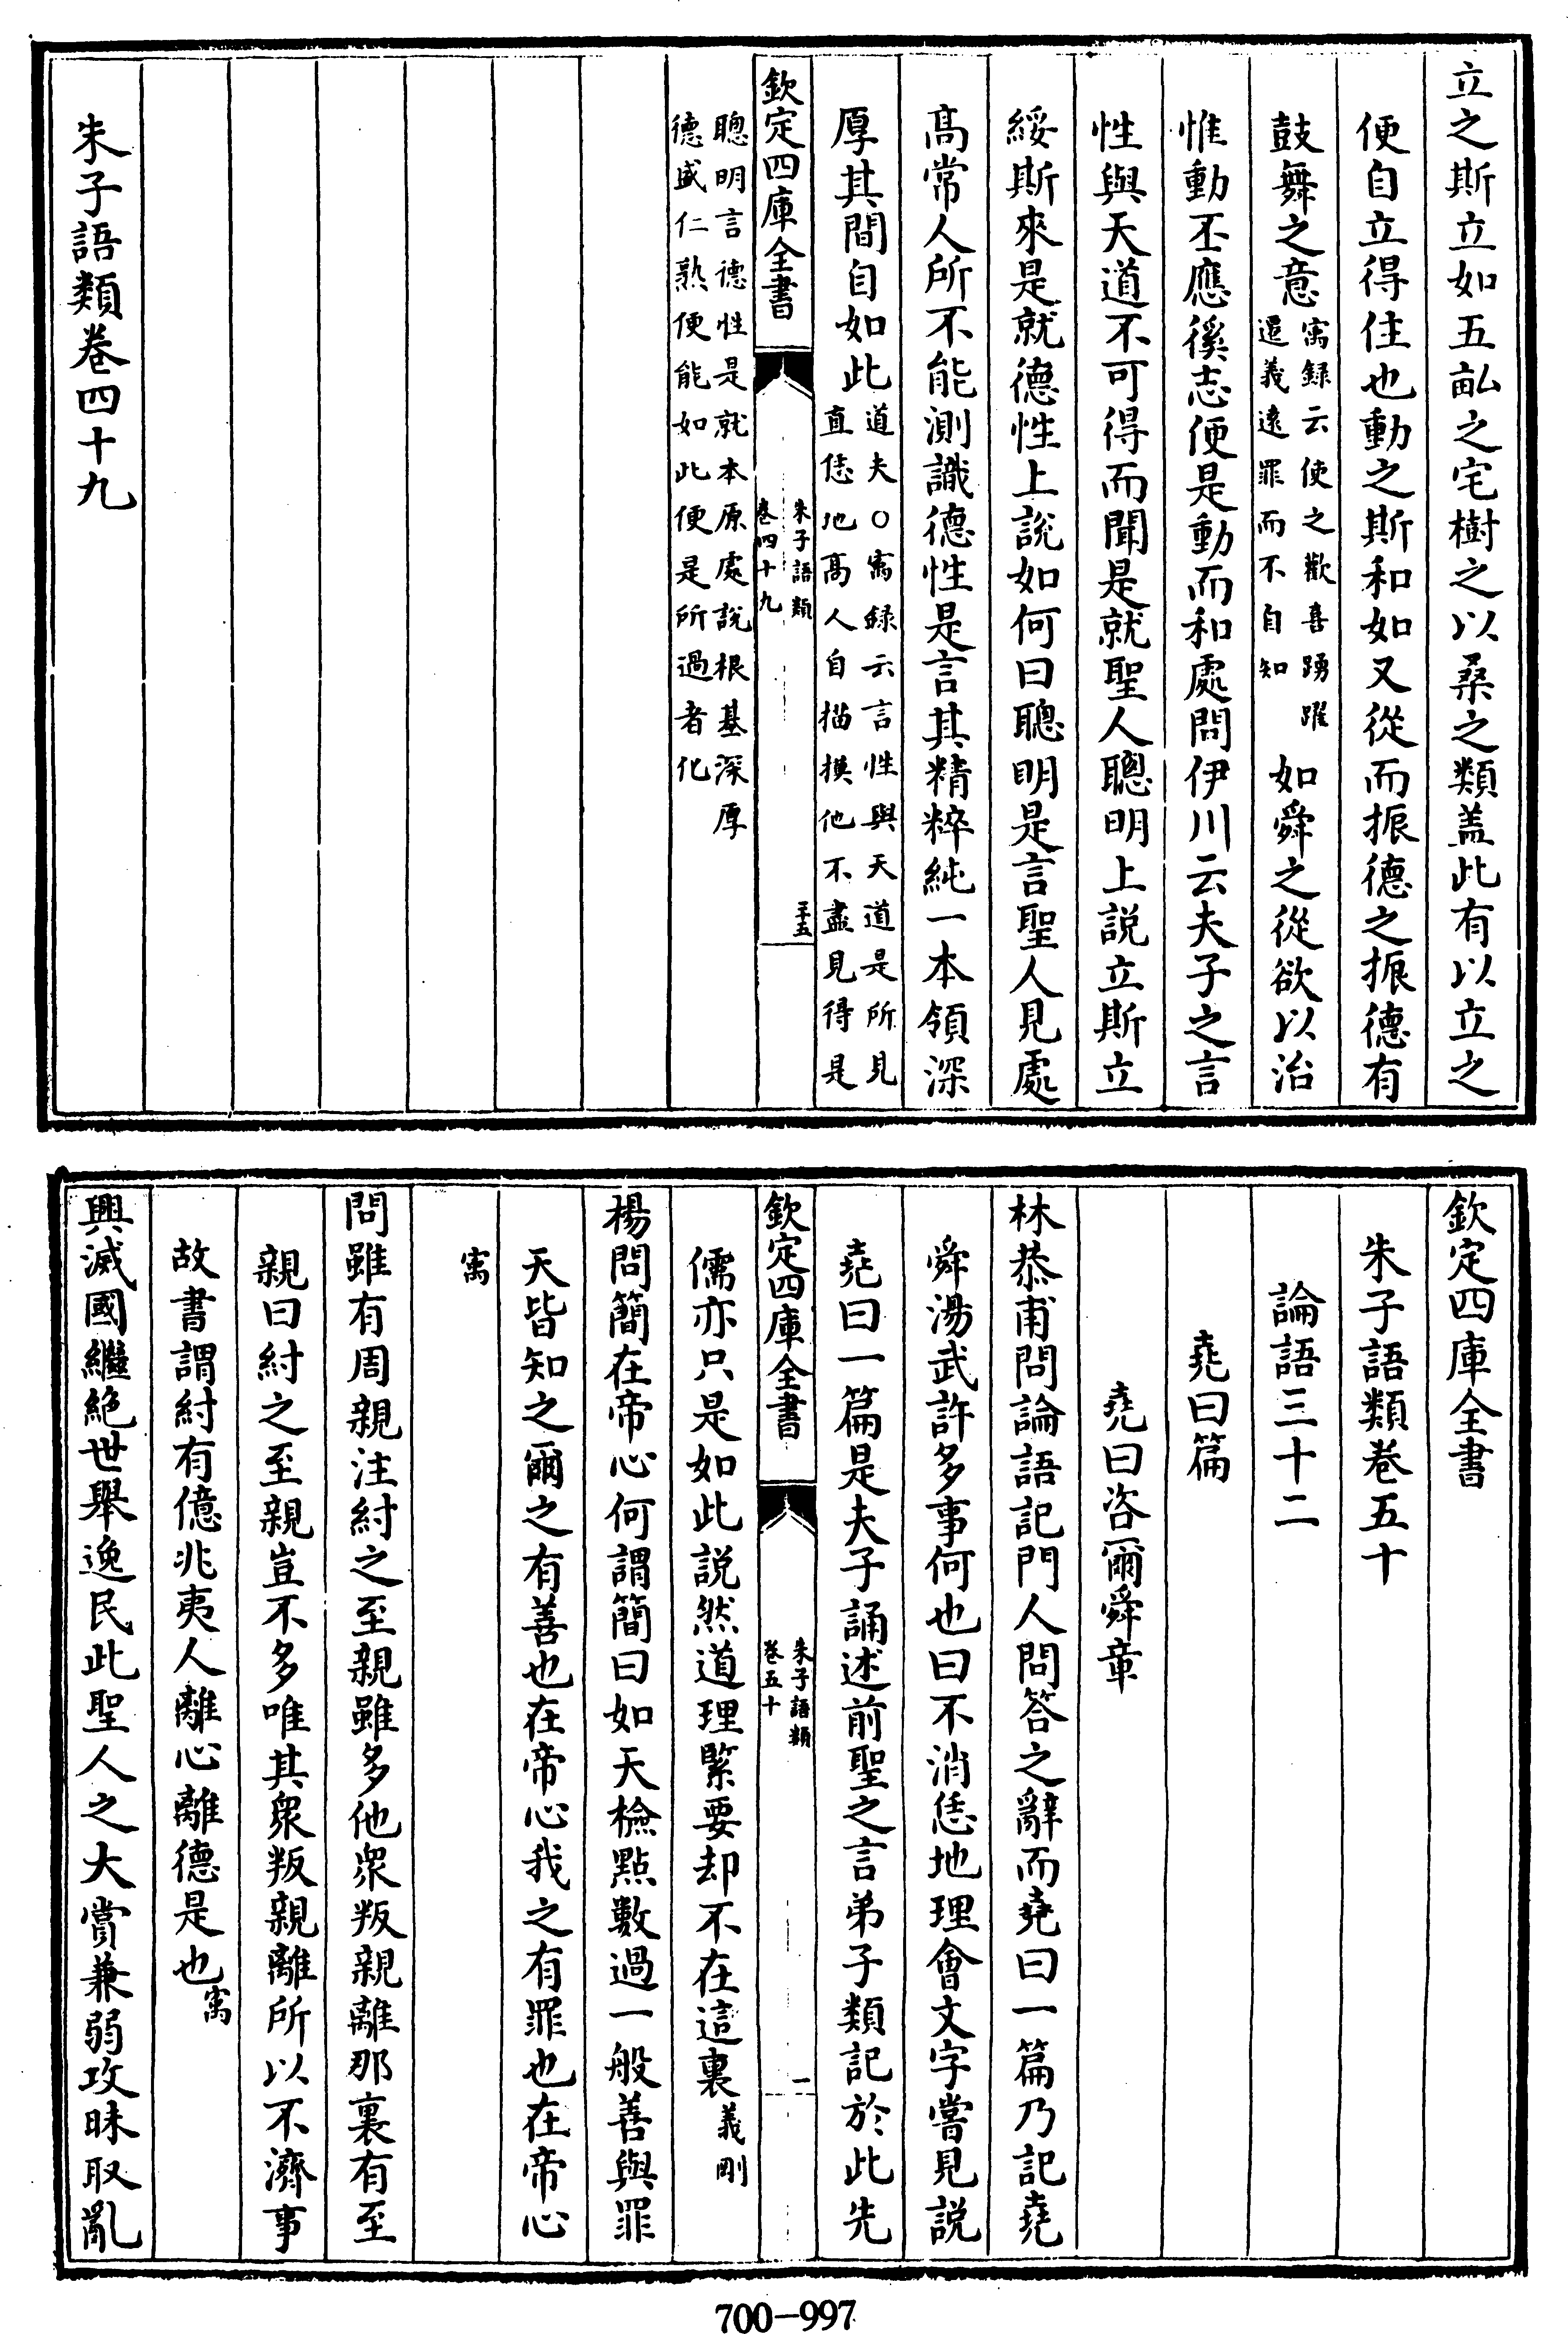 立之斯立如五畝之宅樹之以桑之類盖此有以立之
便自立得住也動之斯和如又從而振德之振德有
鼓舞之意寓録云使之歡喜踴躍遷義遠罪而不自知如舜之從欲以治
惟動丕應徯志便是動而和處問伊川云夫子之言
性與天道不可得而聞是就聖人聰明上説立斯立
綏斯來是就德性上説如何曰聰明是言聖人見處
高常人所不能測識德性是言其精粹純一本領深
厚其間自如此道夫○寓録云言性與天道是所見直恁地高人自描摸他不盡見得是
欽定四庫全書
朱子語類
卷四十九
三十五
聰明言德性是就本原處説根基深厚
德盛仁熟便能如此便是所過者化
朱子語類卷四十九
欽定四庫全書
朱子語類卷五十
論語三十二
堯曰篇
堯曰咨爾舜章
林恭甫問論語記門人問答之辭而堯曰一篇乃記堯
舜湯武許多事何也曰不消恁地理會文字嘗見説
堯曰一篇是夫子誦述前聖之言弟子類記於此先
欽定四庫全書
朱子語類
卷五十
一
儒亦只是如此説然道理緊要却不在這裏義剛
楊問簡在帝心何謂簡曰如天檢點數過一般善與罪
天皆知之爾之有善也在帝心我之有罪也在帝心
寓
問雖有周親注紂之至親雖多他衆叛親離那裏有至
親曰紂之至親豈不多唯其衆叛親離所以不濟事
故書謂紂有億兆夷人離心離德是也寓
興滅國繼絶世舉逸民此聖人之大賞兼弱攻昧取亂
700-997